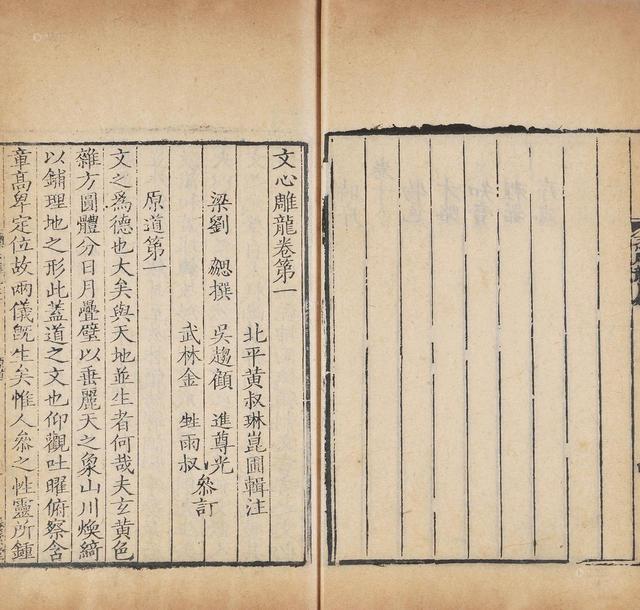 文心雕龍卷第一
北平黃叔琳崑圃輯注
梁劉　勰撰
吳趨顧　進尊光
武林金　甡雨叔
參訂
原道第一
文之為德也大矣與天地並生者何哉夫玄黃色
雜方圓體分日月疊璧以垂麗天之象山川煥綺
以鋪理地之形此蓋道之文也仰觀吐曜俯察含
章高卑定位故兩儀既生矣惟人參之性靈所鍾